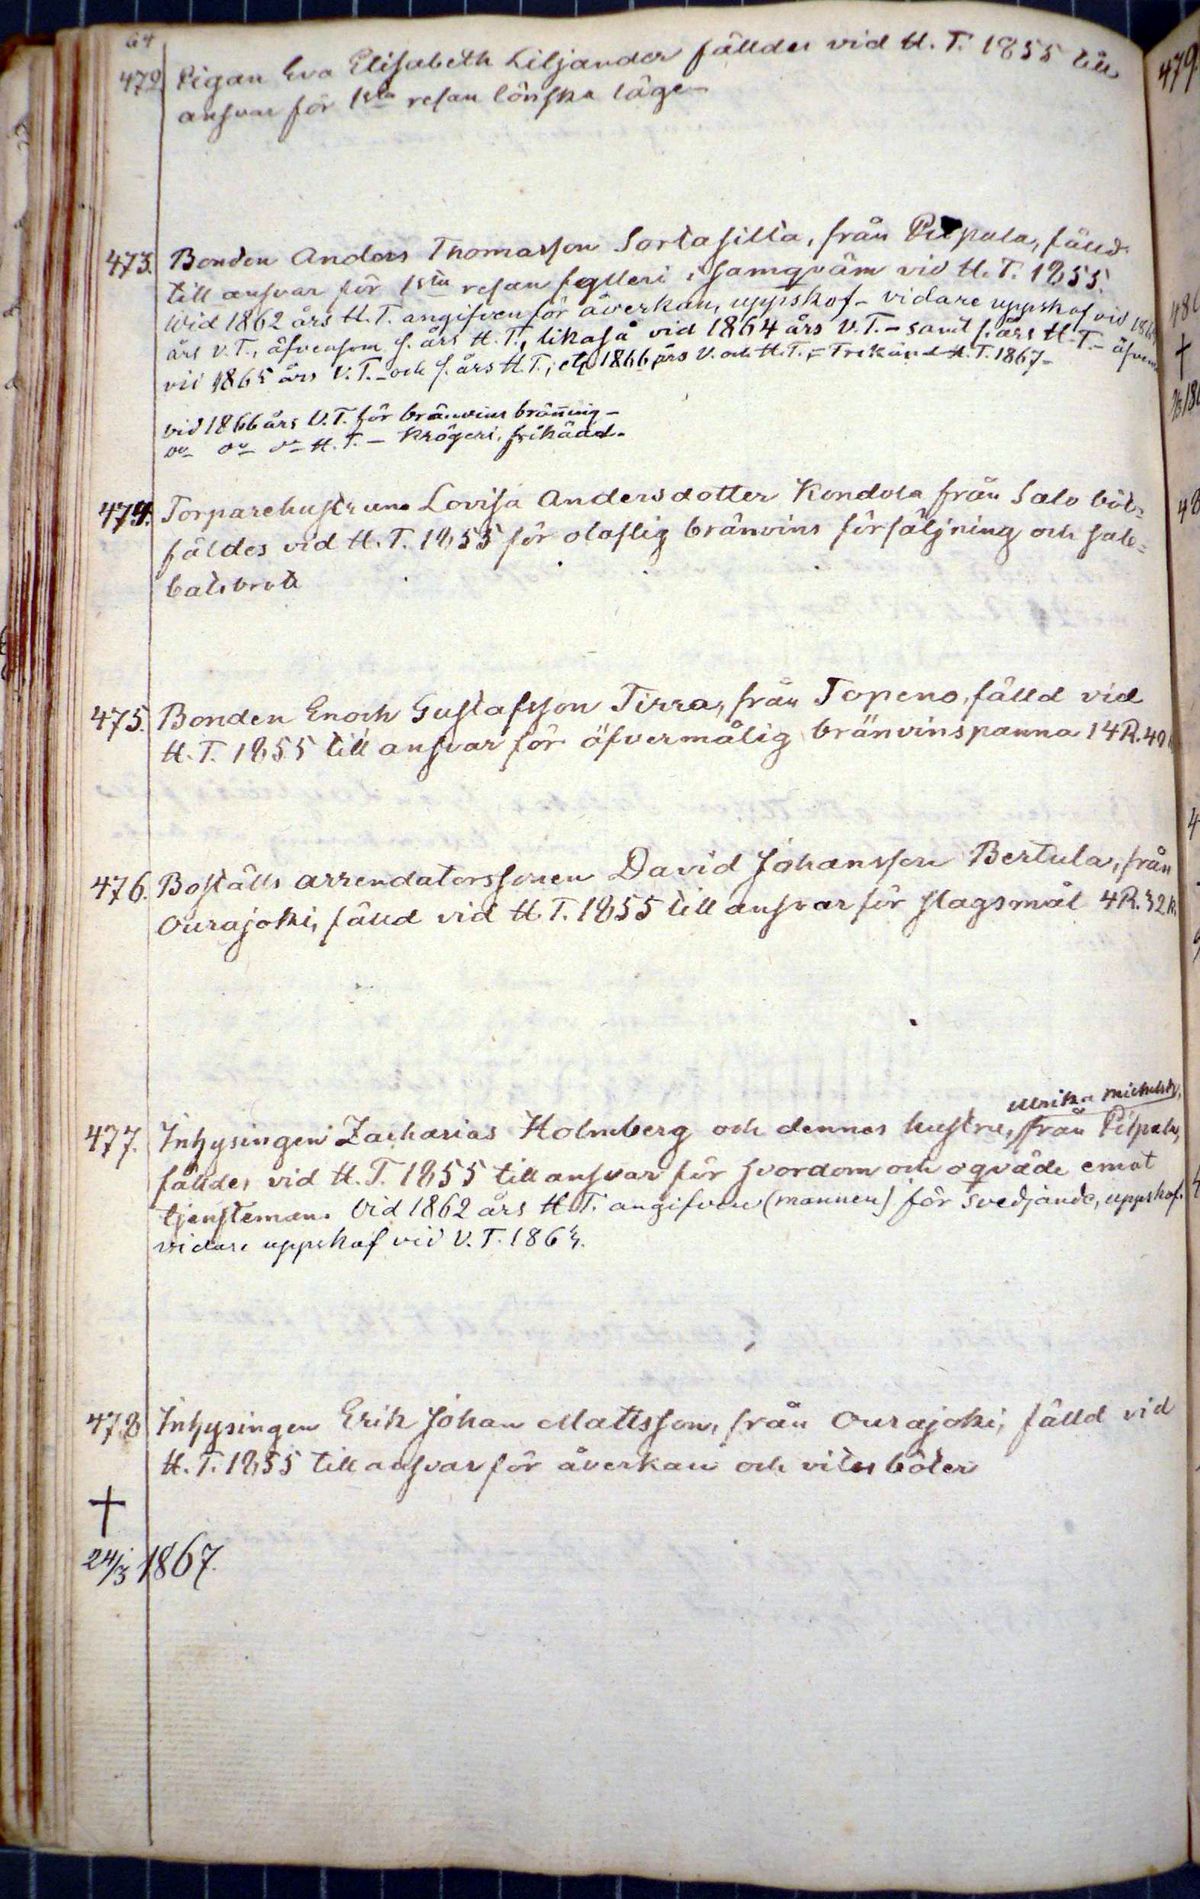 64
472 Pigan Eva Elisabeth Liljander fälldes vid H. T. 1855 till
ansvar för 1sta resan lönska läge
473. Bonden Anders Thomasson Sortasilta, från Pilpala, fälld
till ansvar för 1sta resan fylleri i samqväm vid H. T. 1855.
Wid 1862 års H. T. angifven för åverkan, uppskof - vidare uppskof vid
års V. T., äfvensom s. års H. T., likaså vid 1864 års V. T. - samt s. års H. T. - äfven
vid 1865 års V. T. - och s. års H. T., 1866 års V. och H. T. = Frikänd H. T. 1867 -
vid 1866 års V. T. för bränvins bränning -
do do do H. T. - Krögeri, frikänd.
474. Torparehustrun Lovisa Andersdotter Kondola från Salo
fäldes vid H. T. 1855 för olaflig bränvins försäljning och sab=
batsbrott
475. Bonden Enoch Gustafsson Tirra, från Topeno, fälld vid
H. T. 1855 till ansvar för öfvermålig bränvinspanna 14 R. 40
476. Boställs arrendatorssonen David Johansson Bertula, från
Ourajoki, fälld vid H. T. 1855 till ansvar för slagsmål 4 R. 32 k.
Ulrika Michelsd,
477. Inhysingen Zacharias Holmberg och dennes hustru, från Pilpala,
fälldes vid H. T. 1855 till ansvar för svordom och oqväde emot
tjensteman. Vid 1862 års H. T. angifven (mannen) för svedjande, uppskof.
vidare uppskof vid V. T. 1863.
478 Inhysingen Erik Johan Mattsson, från Ourajoki, fälld vid
H. T. 1855 till ansvar för åverkan och vites böter
†
24/3 1867.